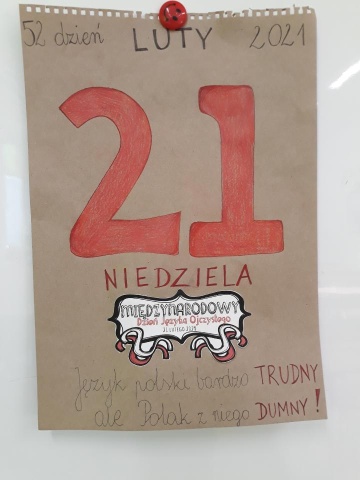 52 dzień LUTY 2021
21
NIEDZIELA
MIĘDZYNARODOWY
Dzień Języka Ojczystego
Język polski bardzo TRUDNY
ale Polak z niego DUMNY!